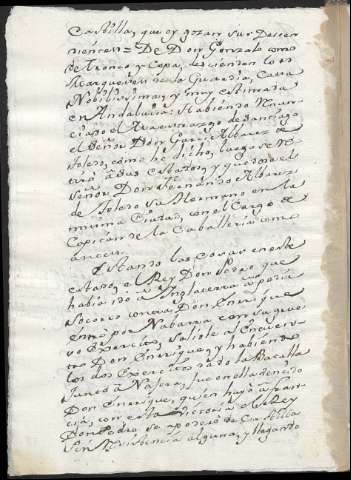 Castilla, que oy gozan sus Descen
dencias: De Don Gonzalo como
de tronco y Cepa, descienden los
Marqueses de la Guardia, Casa
Nobilissima, y muy estimada
en Andalucia: Habiendo Renun
ciado el Maestrazgo de Santiago
el Señor Don Garci Albarez de
Toledo, como he dicho, luego se re
tiró a sus estados, y quedó el
Señor Don Fernando Albarez
de Toledo su Hermano en la
misma Ciudad, con el Cargo de
Capitan de la Caballeria como
antes.
Estando las cosas en este
estado, el Rey Don Pedro que
habia ido a Inglaterra a pedir
Socorro contra Don Enrique
entró por Nabarra con un grue
so Exercito, saliole al encuen
tro Don Enrique, y habiendo
los dos Exercitos dado la Batalla
junto a Najera, fue en ella vencido
Don Enrique, quien huyó a Fran
cia, con esta Victoria el Rey
Don Pedro se apoderó de Castilla
sin resistencia alguna, y llegando